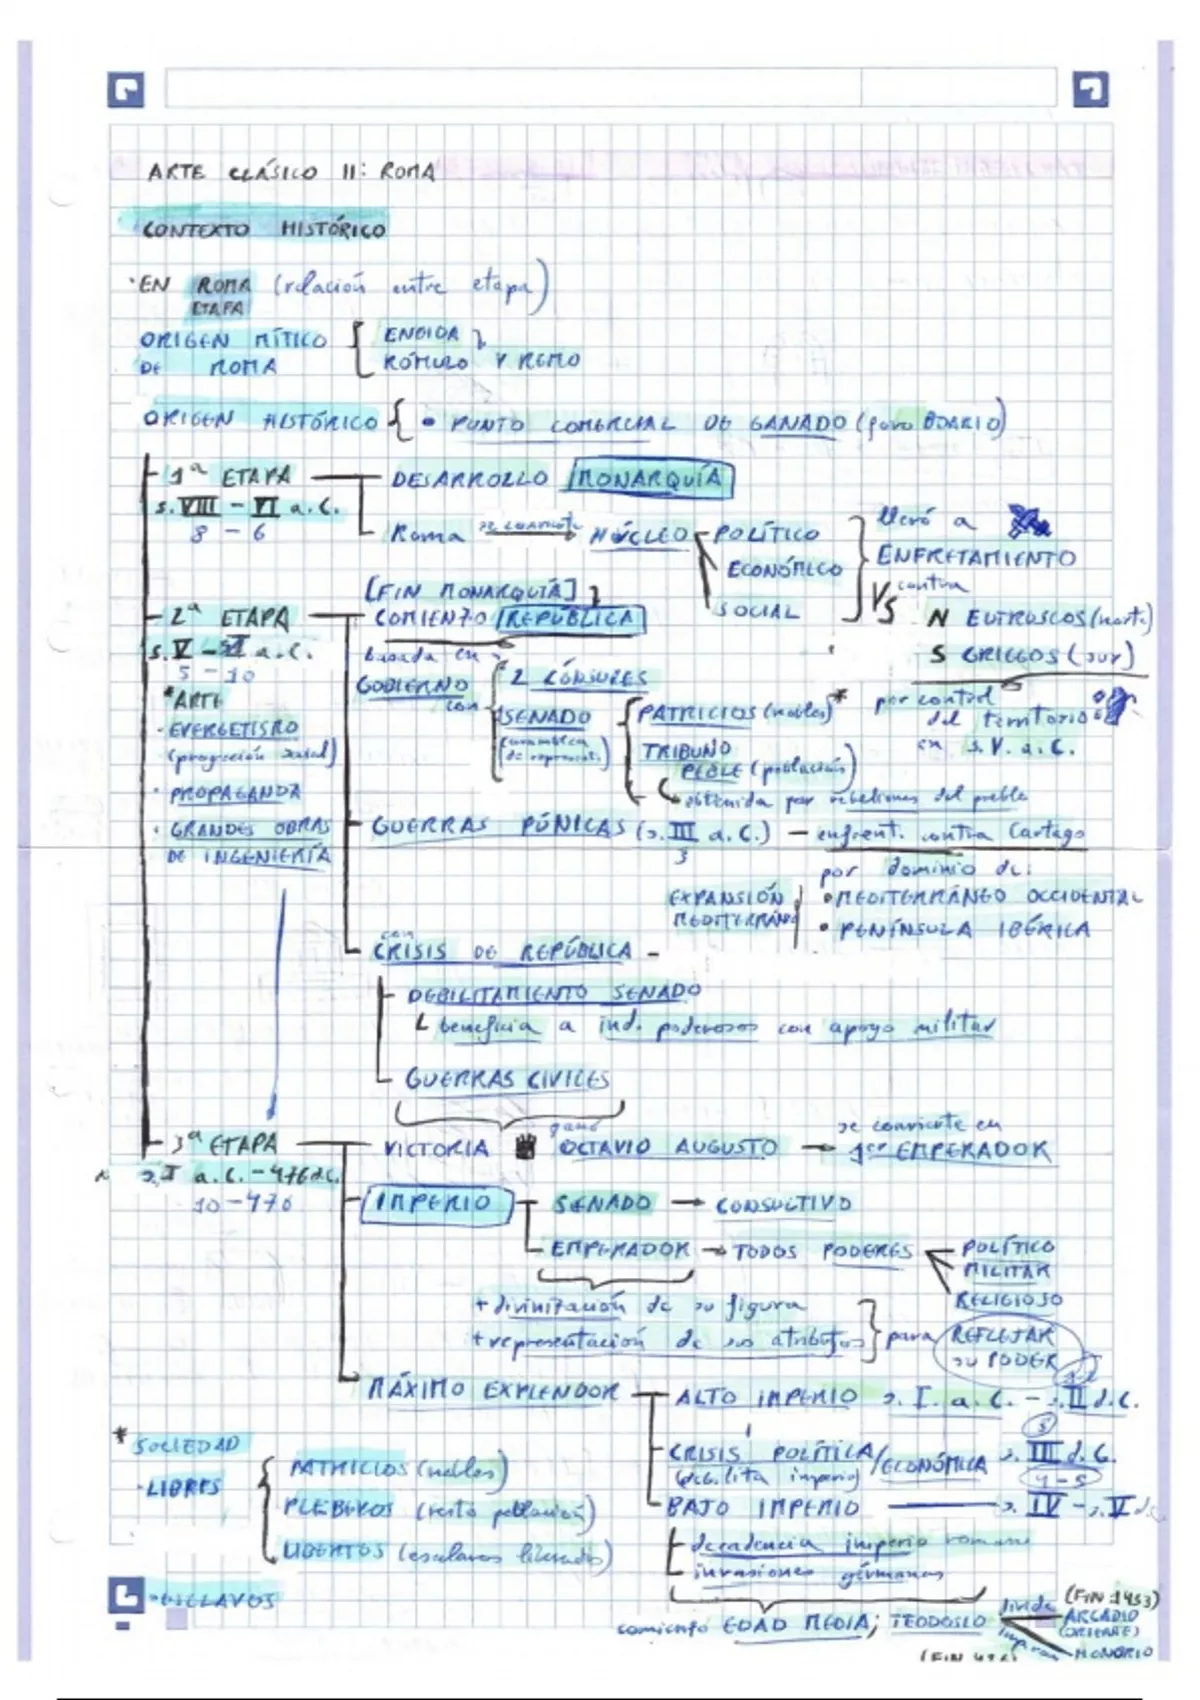 ARTE CLÁSICO II: ROMA
CONTEXTO HISTÓRICO
· EN ROMA (relación entre etapa)
ETAPA
ORIGEN MÍTICO DE ROMA { ENEIDA
RÓMULO Y REMO
ORIGEN HISTÓRICO { • PUNTO COMERCIAL DE GANADO (foro BOARIO)
1ª ETAPA
s. VIII - VI a.C.
8 - 6
DESARROLLO MONARQUÍA
Roma se convierte NÚCLEO
POLÍTICO
ECONÓMICO
SOCIAL
llevó a
ENFRETAMIENTO
Vs contra
N EUTRUSCOS (norte)
S GRIEGOS (sur)
por control
del territorio
en s. V. a. C.
2ª ETAPA
s. V - I a.C.
5 - 10
[FIN MONARQUÍA]
COMIENZO REPÚBLICA
basada en
GOBIERNO
con
2 CÓNSULES
SENADO
(asamblea
de represent.)
PATRICIOS (nobles)*
TRIBUNO
PLEBE (población)
obtenida por rebeliones del pueblo
*ARTE
· EVERGETISMO
(progresión social)
· PROPAGANDA
· GRANDES OBRAS
DE INGENIERÍA
GUERRAS PÚNICAS (s. III a. C.) — enfrent. contra Cartago
3
por dominio de:
EXPANSIÓN
MEDITERRÁN
• MEDITERRÁNEO OCCIDENTAL
• PENÍNSULA IBÉRICA
con
CRISIS DE REPÚBLICA -
DEBILITAMIENTO SENADO
beneficia a ind. poderosos con apoyo militar
GUERRAS CIVILES
3ª ETAPA
s. I a.C. - 476 d.C.
10 - 476
VICTORIA
ganó
OCTAVIO AUGUSTO
se convierte en
1er EMPERADOR
IMPERIO
SENADO → CONSULTIVO
EMPERADOR → TODOS PODERES
POLÍTICO
MILITAR
RELIGIOSO
+ divinización de su figura
+ representación de sus atributos
para REFLEJAR
SU PODER
MÁXIMO EXPLENDOR
ALTO IMPERIO s. I. a. C. - s. II d.C.
CRISIS POLÍTICA/ECONÓMICA s. III d. C.
3
(debilita imperio)
4 - 5
BAJO IMPERIO — s. IV - s. V d.
decadencia imperio romano
invasiones germanas
comienzo EDAD MEDIA; TEODOSIO
divide
(FIN 1453)
ARCADIO
(ORIENTE)
HONORIO
(FIN 476)
* SOCIEDAD
· LIBRES
PATRICIOS (nobles)
PLEBEYOS (resto población)
LIBERTOS (esclavos liberados)
· ESCLAVOS